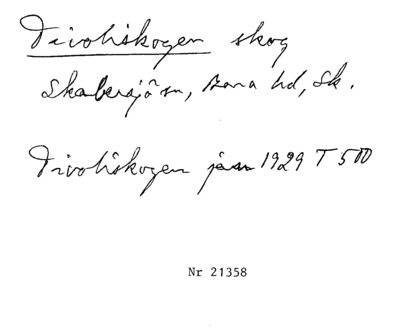 Tivoliskogen skog
Skabersjö sn, Bara hd, Sk.
Tivoliskogen 1929 T 500
Nr 21358